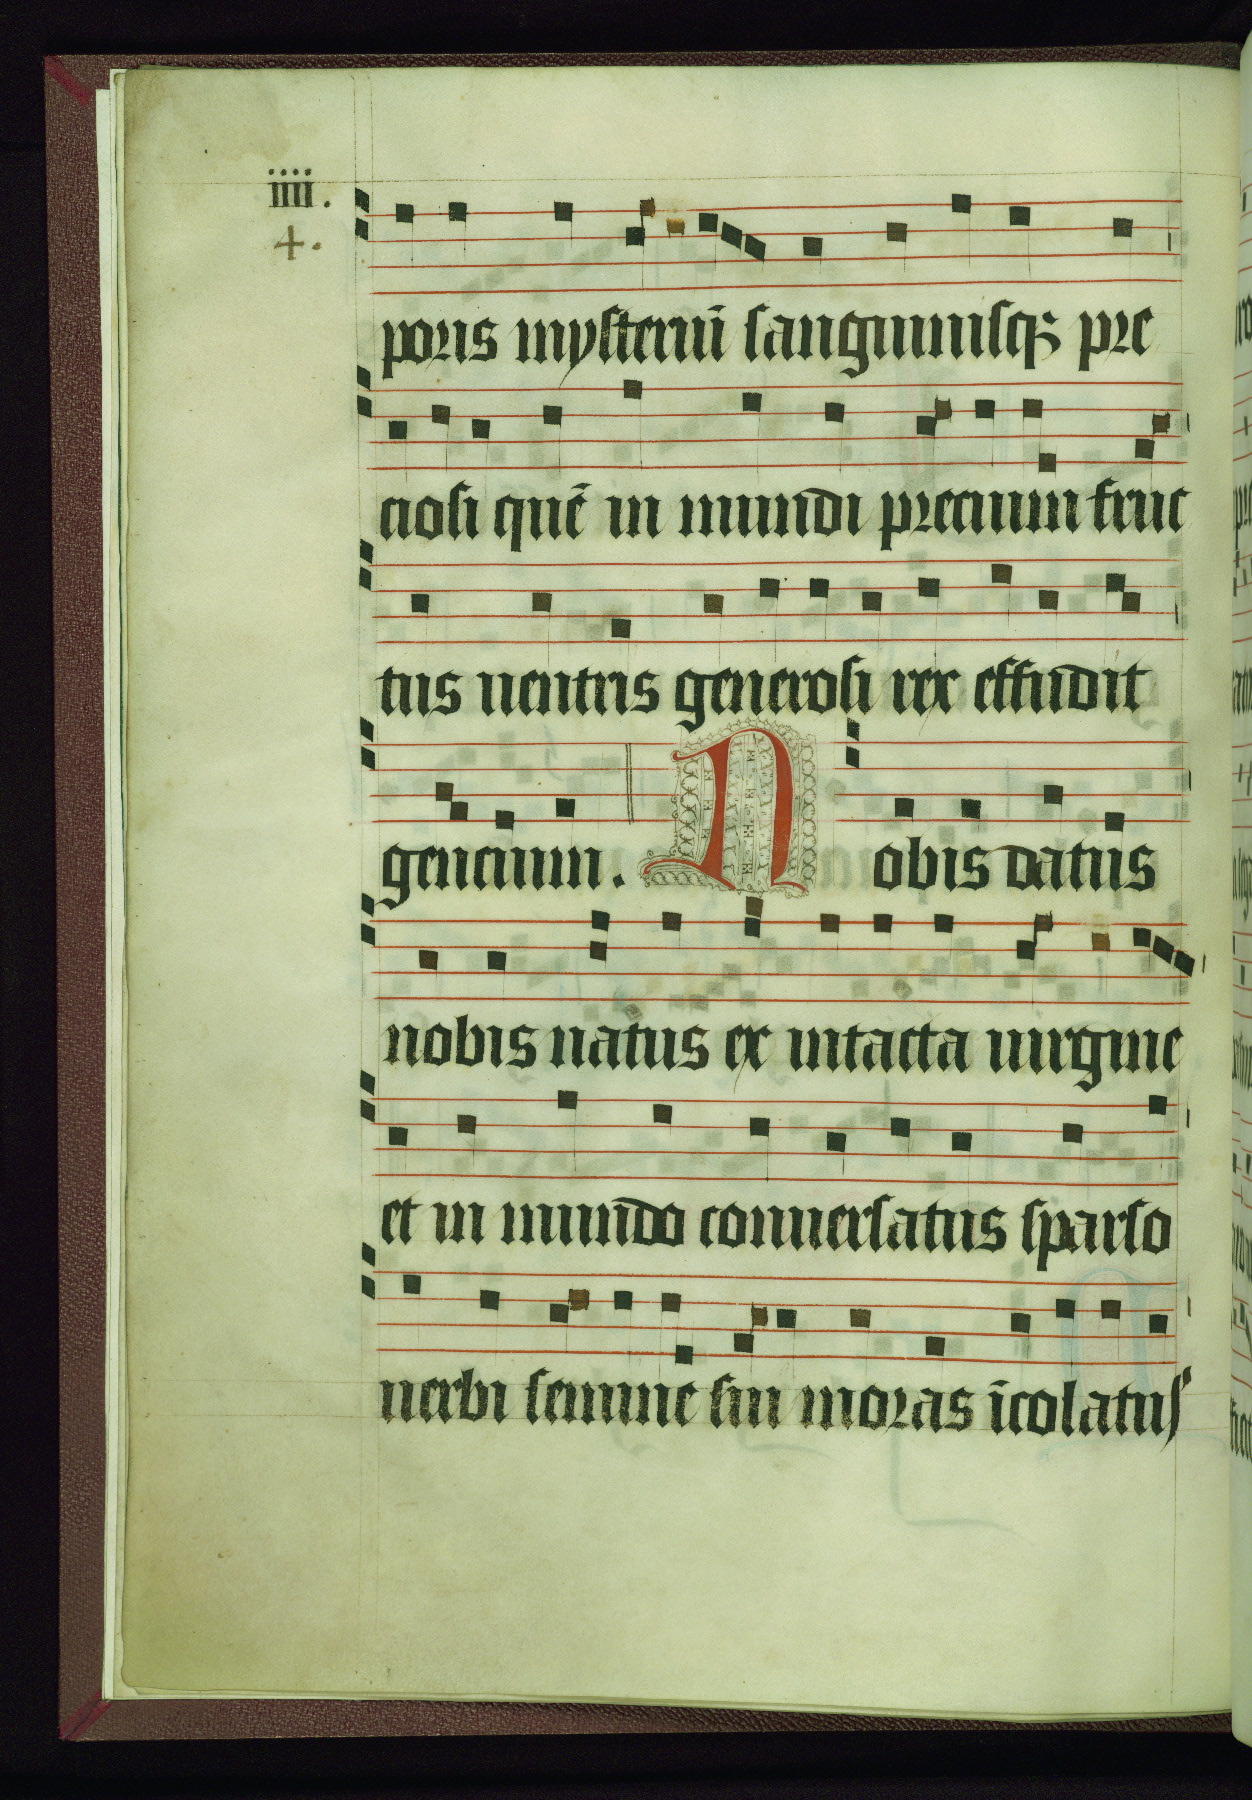 iiii.
4.
poris mysteriū sanguinisqꝫ pre
ciosi quē in mundi precium fruc
tus uentris generosi rex effudit
gencium. Nobis datus
nobis natus ex intacta uirgine
et in mundo conuersatus sparso
uerbi semine sui moras īcolatus